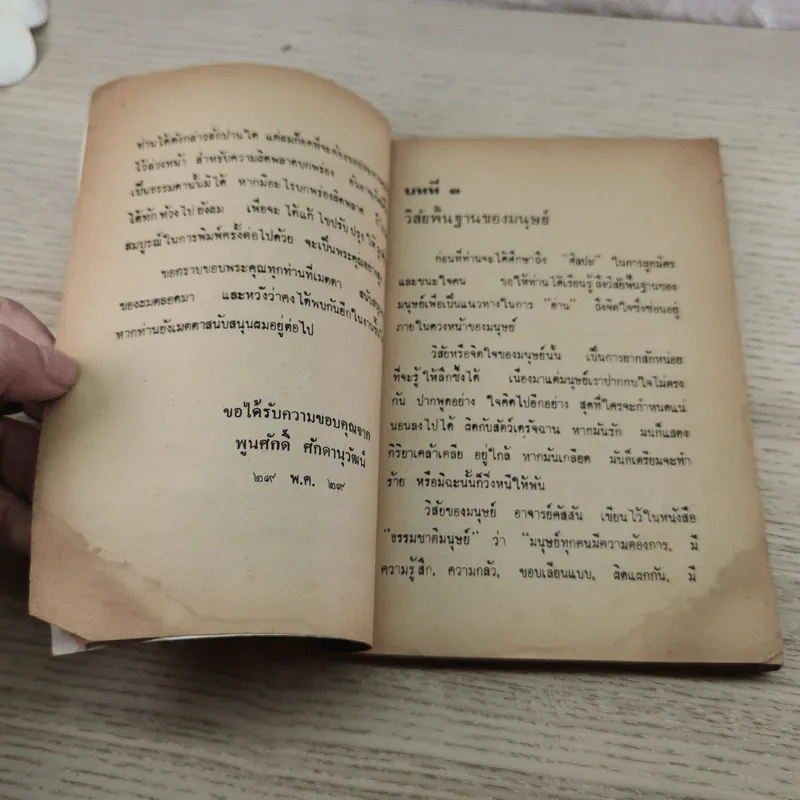 ท่านได้ดังกล่าวสักปานใด แต่ผมก็อดที่จะต้องขอประทานอภัย
ไว้ล่วงหน้า สำหรับความผิดพลาดบกพร่อง อันอาจเกิดมี
เป็นธรรมดานั้นมิได้ หากมีอะไรบกพร่องผิดพลาด
ได้ทักท้วงไปยังผม เพื่อจะได้แก้ไขปรับปรุงให้
สมบูรณ์ในการพิมพ์ครั้งต่อไปด้วย จะเป็นพระคุณอย่างสูง
ขอกราบขอบพระคุณทุกท่านที่เมตตา
ของผมตลอดมา และหวังว่าคงได้พบกันอีกในงาน
หากท่านยังเมตตาสนับสนุนผมอยู่ต่อไป
ขอได้รับความขอบคุณจาก
พูนศักดิ์ ศักดานุวัฒน์
๒๙ พ.ค. ๒๙
บทที่ ๑
วิสัยพื้นฐานของมนุษย์
ก่อนที่ท่านจะได้ศึกษาถึง "ศิลปะ" ในการผูกมิตร
และชนะใจคน ขอให้ท่านได้เรียนรู้ถึงวิสัยพื้นฐานของ
มนุษย์เพื่อเป็นแนวทางในการ "อ่าน" ถึงจิตใจซึ่งซ่อนอยู่
ภายในดวงหน้าของมนุษย์
วิสัยหรือจิตใจของมนุษย์นั้น เป็นการยากสักหน่อย
ที่จะรู้ให้ลึกซึ้งได้ เนื่องมาแต่มนุษย์เราปากกับใจไม่ตรง
กัน ปากพูดอย่าง ใจคิดไปอีกอย่าง สุดที่ใครจะกำหนดแน่
นอนลงไปได้ ผิดกับสัตว์เดรัจฉาน หากมันรัก มันก็แสดง
กิริยาเคล้าเคลีย อยู่ใกล้ หากมันเกลียด มันก็เตรียมจะทำ
ร้าย หรือมิฉะนั้นก็วิ่งหนีให้พ้น
วิสัยของมนุษย์ อาจารย์คัสสัน เขียนไว้ในหนังสือ
"ธรรมชาติมนุษย์" ว่า "มนุษย์ทุกคนมีความต้องการ, มี
ความรู้สึก, ความกลัว, ชอบเลียนแบบ, ผิดแผกกัน, มี